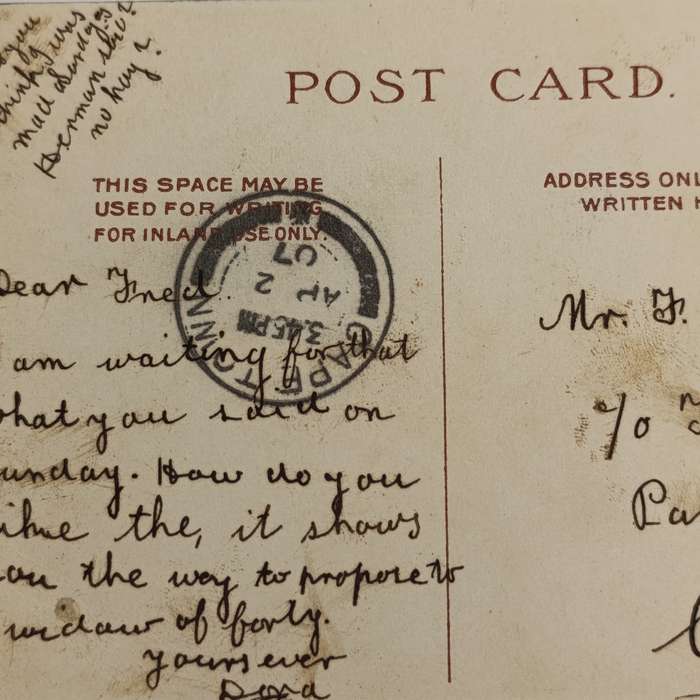 you
think uns
mad Sunday?
Herman sed?
no hay?
POST CARD.
THIS SPACE MAY BE
USED FOR WRITING
FOR INLAND USE ONLY.
ADDRESS ONL
WRITTEN H
CAPE TOWN
3.45 PM
AP 2
07
Dear Fred.
am waiting for that
what you said on
unday. How do you
like the, it shows
ou the way to propose to
widaw of forty.
yours ever
Dora
Mr. F.
c/o
Pa